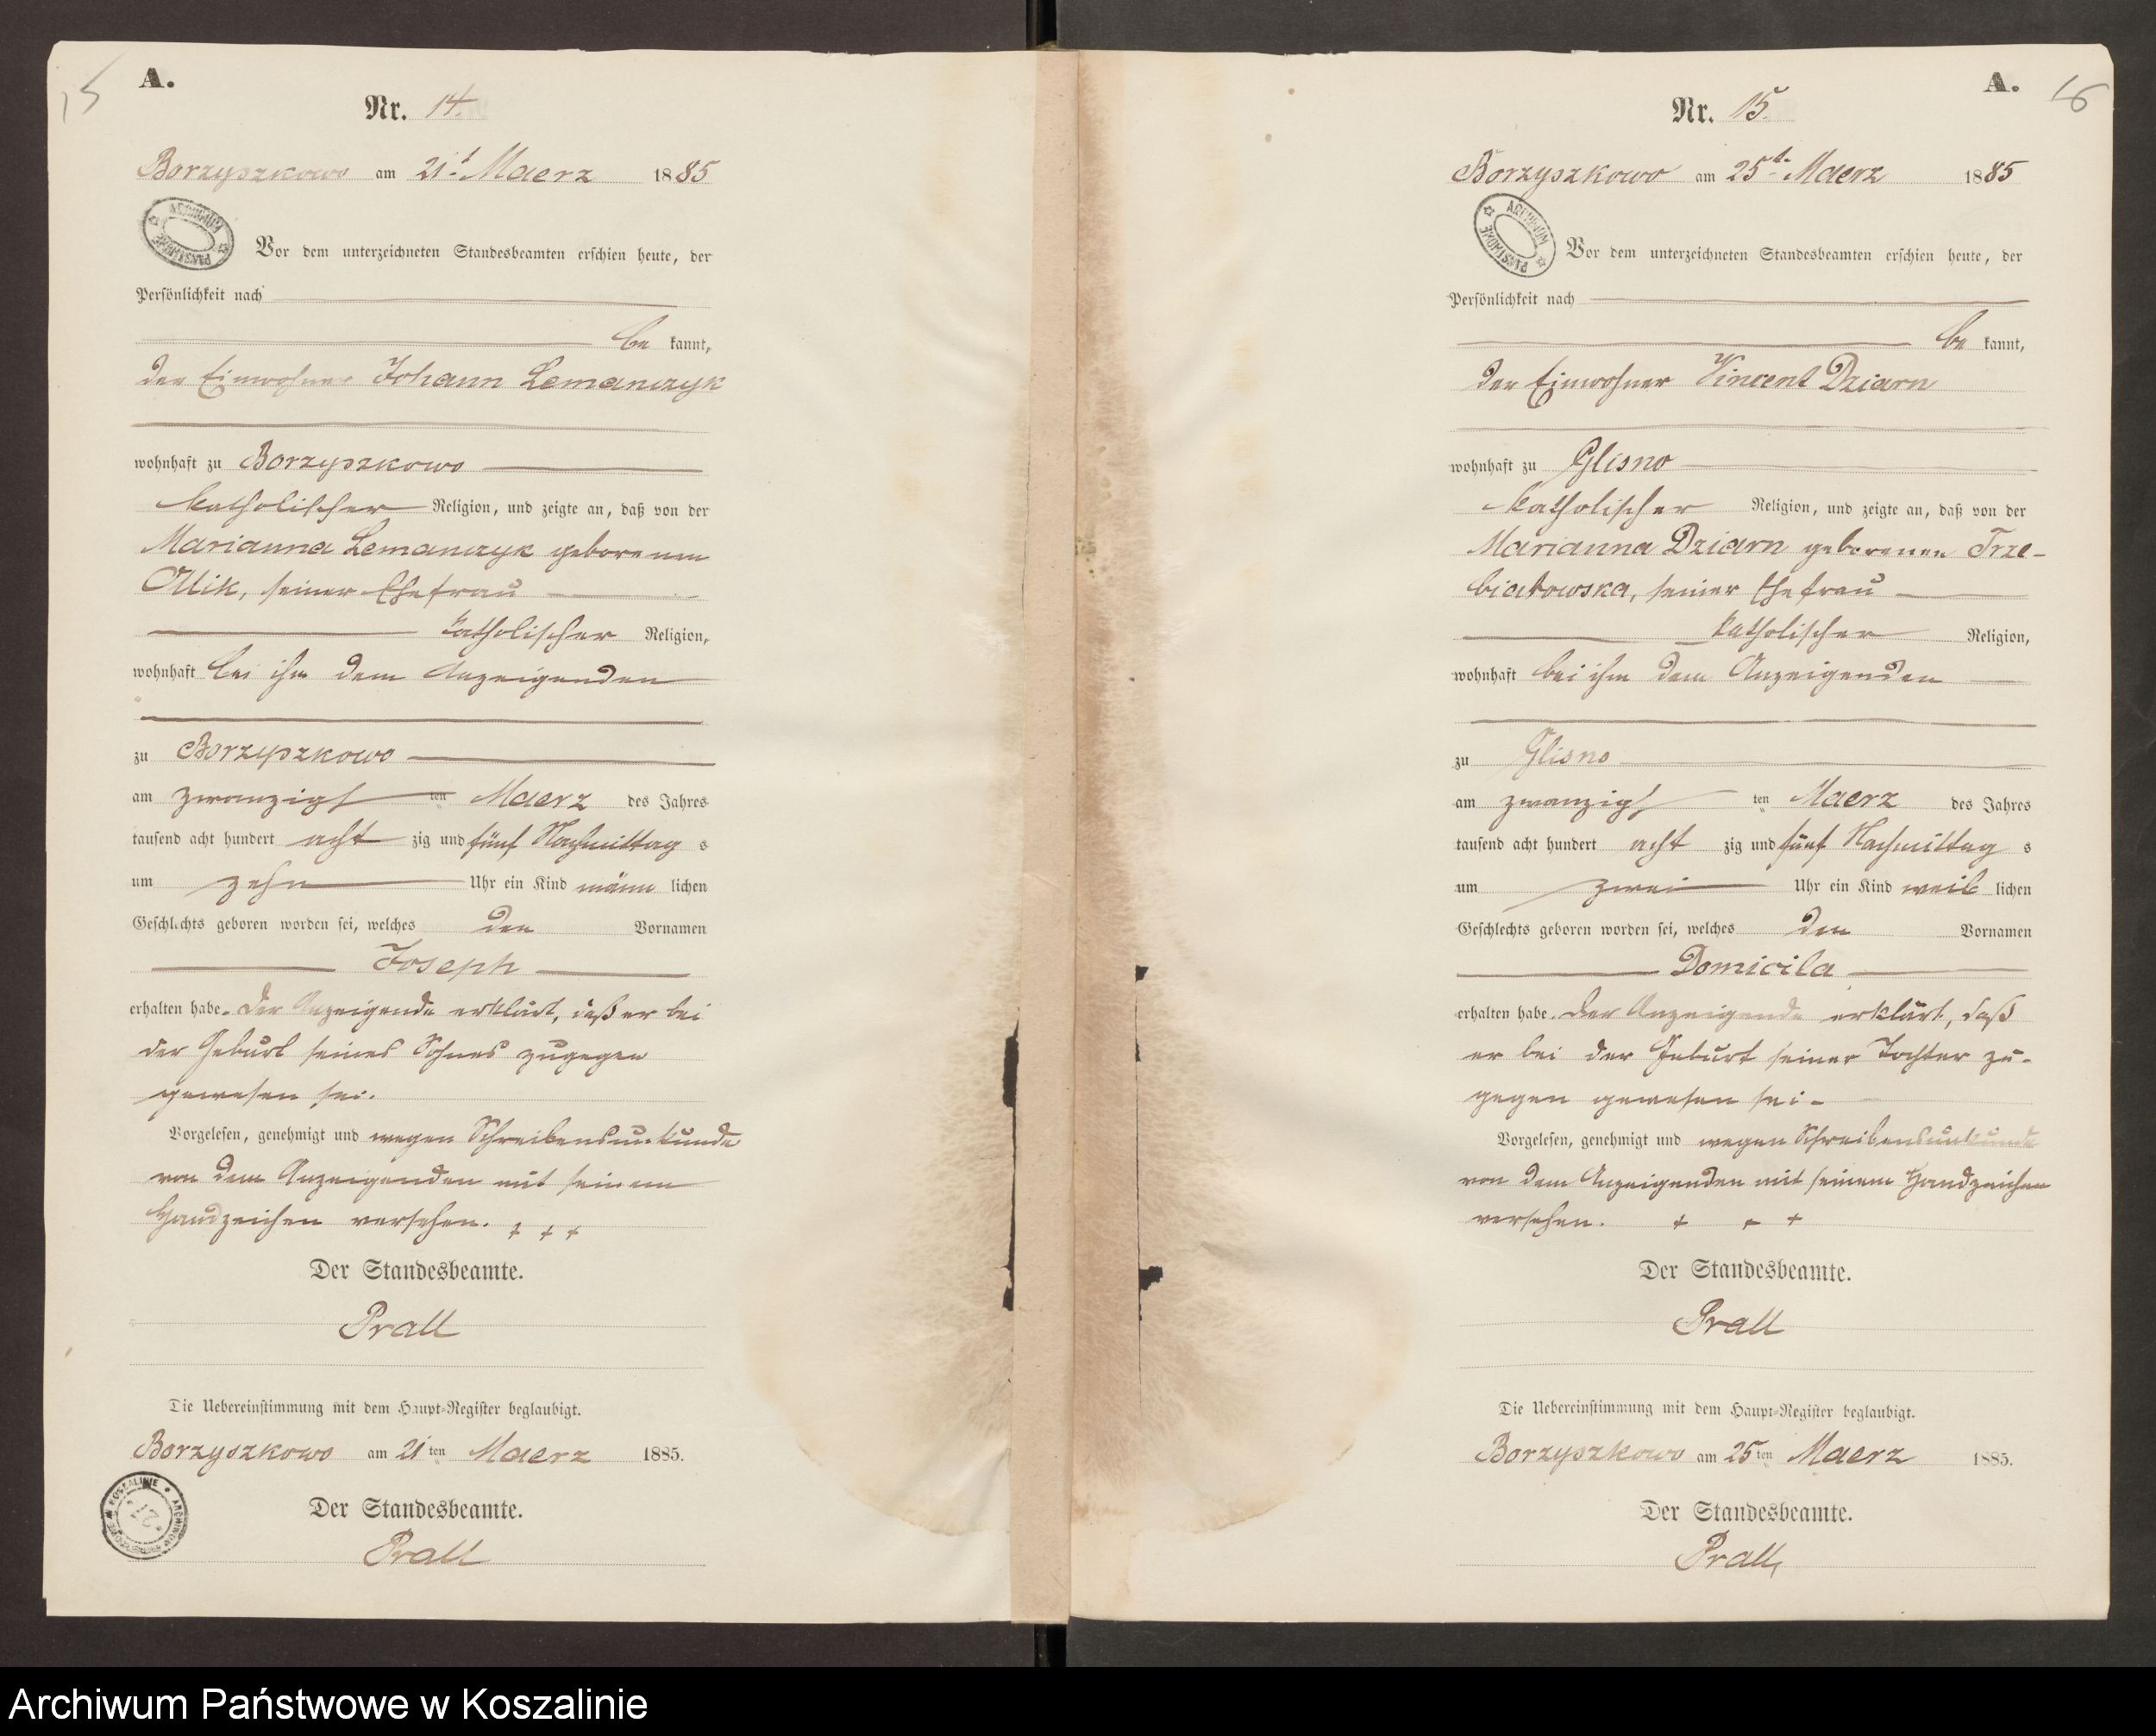 15
A.
Nr. 14.
Borzyszkowo am 21t Maerz 1885
ARCHIWUM PAŃSTWOWE
Vor dem unterzeichneten Standesbeamten erschien heute, der
Persönlichkeit nach
be kannt,
der Einwohner Johann Lemanczyk
wohnhaft zu Borzyszkowo
katholischer Religion, und zeigte an, daß von der
Marianna Lemanczyk geborenen
Ollik, seiner Ehefrau
katholischer Religion,
wohnhaft bei ihm dem Anzeigenden
zu Borzyszkowo
am zwanzigst ten Maerz des Jahres
tausend acht hundert acht zig und fünf Nachmittag s
um zehn Uhr ein Kind männ lichen
Geschlechts geboren worden sei, welches den Vornamen
Joseph
erhalten habe. Der Anzeigende erklärt, daß er bei
der Geburt seines Sohnes zugegen
gewesen sei.
Vorgelesen, genehmigt und wegen Schreibensunkunde
von dem Anzeigenden mit seinem
Handzeichen versehen. + + +
Der Standesbeamte.
Prall
Die Uebereinstimmung mit dem Haupt-Register beglaubigt.
Borzyszkowo am 21ten Maerz 1885.
Der Standesbeamte.
Prall
A.
16
Nr. 15.
Borzyszkowo am 25t Maerz 1885
ARCHIWUM PAŃSTWOWE
Vor dem unterzeichneten Standesbeamten erschien heute, der
Persönlichkeit nach
be kannt,
der Einwohner Vincent Dziarn
wohnhaft zu Glisno
katholischer Religion, und zeigte an, daß von der
Marianna Dziarn geborenen Trze-
biatowska, seiner Ehefrau
katholischer Religion,
wohnhaft bei ihm dem Anzeigenden
zu Glisno
am zwanzigst ten Maerz des Jahres
tausend acht hundert acht zig und fünf Nachmittag s
um zwei Uhr ein Kind weib lichen
Geschlechts geboren worden sei, welches den Vornamen
Domicila
erhalten habe. Der Anzeigende erklärt, daß
er bei der Geburt seiner Tochter zu-
gegen gewesen sei-
Vorgelesen, genehmigt und wegen Schreibensunkunde
von dem Anzeigenden mit seinem Handzeichen
versehen. + + +
Der Standesbeamte.
Prall
Die Uebereinstimmung mit dem Haupt-Register beglaubigt.
Borzyszkowo am 25ten Maerz 1885.
Der Standesbeamte.
Prall
Archiwum Państwowe w Koszalinie